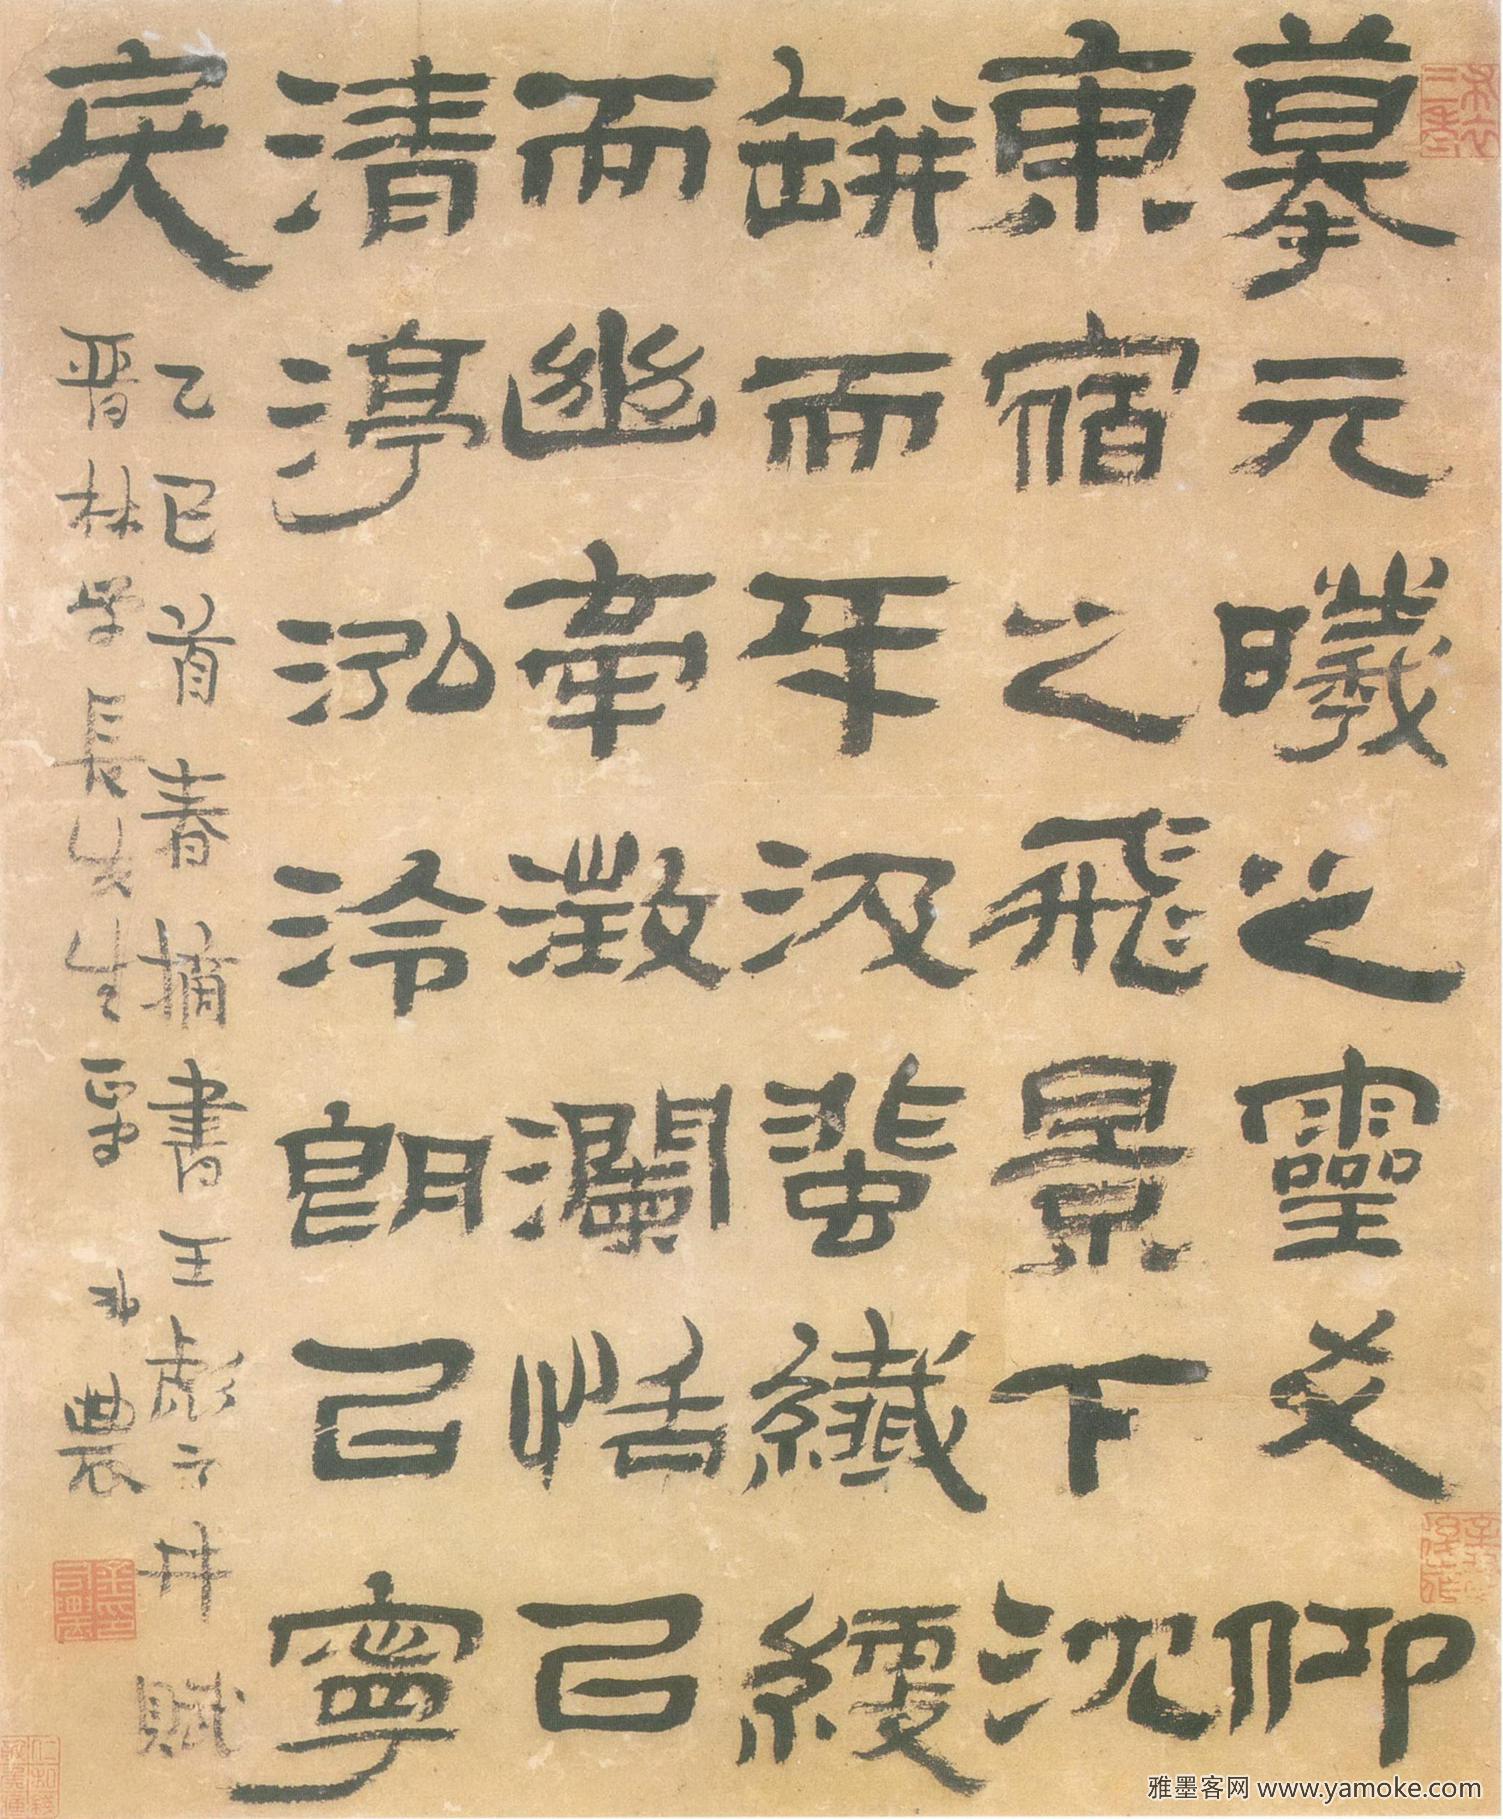 摹元曦之靈爻仰
東宿之飛景下沈
缾而牙汲蜚纖綆
而幽牽澂瀾恬㠯
清渟泓泠朗㠯寧
戾
乙巳首春摘書王彪之井賦
晋林學長先生正 弟農
雅墨客网 www.yamoke.com